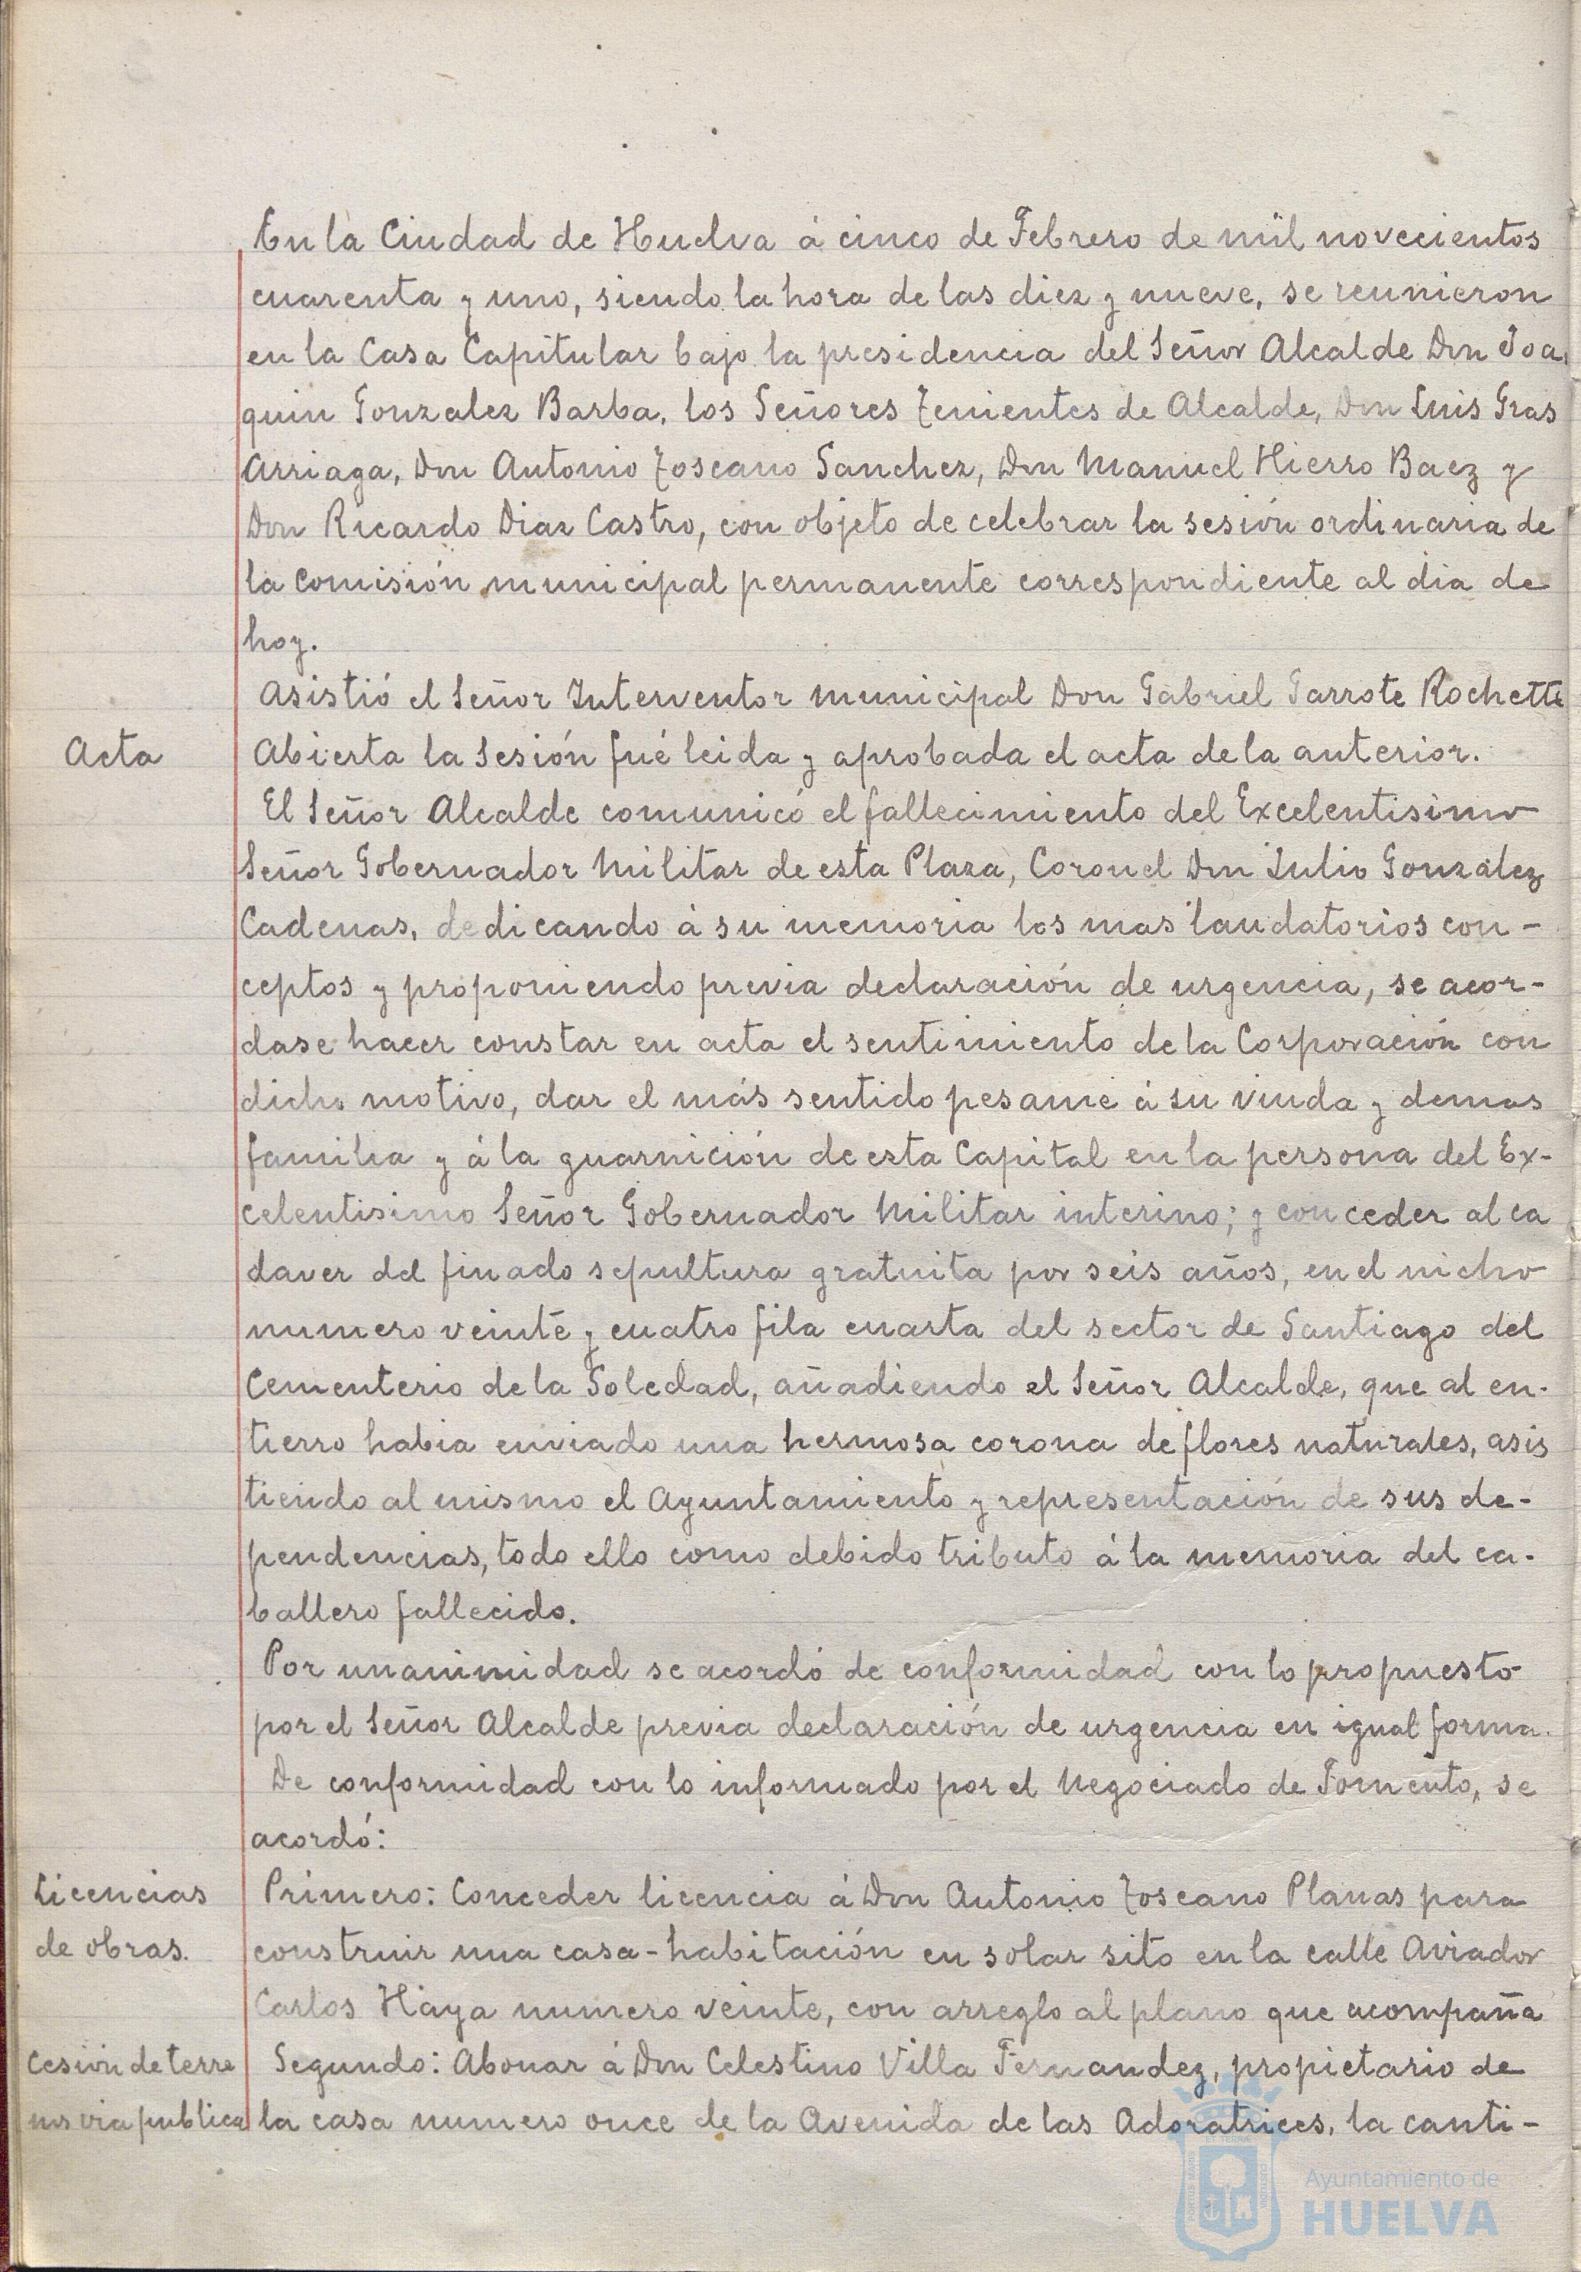 En la Ciudad de Huelva á cinco de Febrero de mil novecientos
cuarenta y uno, siendo la hora de las diez y nueve, se reunieron
en la Casa Capitular bajo la presidencia del Señor Alcalde Don Joa
quin Gonzalez Barba, los Señores Tenientes de Alcalde, Don Luis Gras
Arriaga, Don Antonio Toscano Sanchez, Don Manuel Hierro Baez y
Don Ricardo Diaz Castro, con objeto de celebrar la sesión ordinaria de
la Comisión municipal permanente correspondiente al dia de
hoy.
Asistió el Señor Interventor municipal Don Gabriel Garrote Rochette
Acta
Abierta la Sesión fué leida y aprobada el acta de la anterior.
El Señor Alcalde comunicó el fallecimiento del Excelentisimo
Señor Gobernador Militar de esta Plaza, Coronel Don Julio Gonzalez
Cadenas, dedicando á su memoria los mas laudatorios con-
ceptos y proponiendo previa declaración de urgencia, se acor-
dase hacer constar en acta el sentimiento de la Corporación con
dicho motivo, dar el más sentido pesame á su viuda y demas
familia y á la guarnición de esta Capital en la persona del Ex-
celentisimo Señor Gobernador Militar interino; y conceder al ca
daver del finado sepultura gratuita por seis años, en el nicho
numero veinte y cuatro fila cuarta del sector de Santiago del
Cementerio de la Soledad, añadiendo el Señor Alcalde, que al en-
tierro habia enviado una hermosa corona de flores naturales, asis
tiendo al mismo el Ayuntamiento y representación de sus de-
pendencias, todo ello como debido tributo á la memoria del ca-
ballero fallecido.
Por unanimidad se acordó de conformidad con lo propuesto
por el Señor Alcalde previa declaración de urgencia en igual forma.
De conformidad con lo informado por el Negociado de Fomento, se
acordó:
Licencias
de obras.
Primero: Conceder licencia á Don Antonio Toscano Planas para
construir una casa-habitación en solar sito en la calle Aviador
Carlos Haya numero veinte, con arreglo al plano que acompaña
Cesión de terre
nos via publica
Segundo: Abonar á Don Celestino Villa Fernandez, propietario de
la casa numero once de la Avenida de las Adoratrices, la canti-
Ayuntamiento de
HUELVA